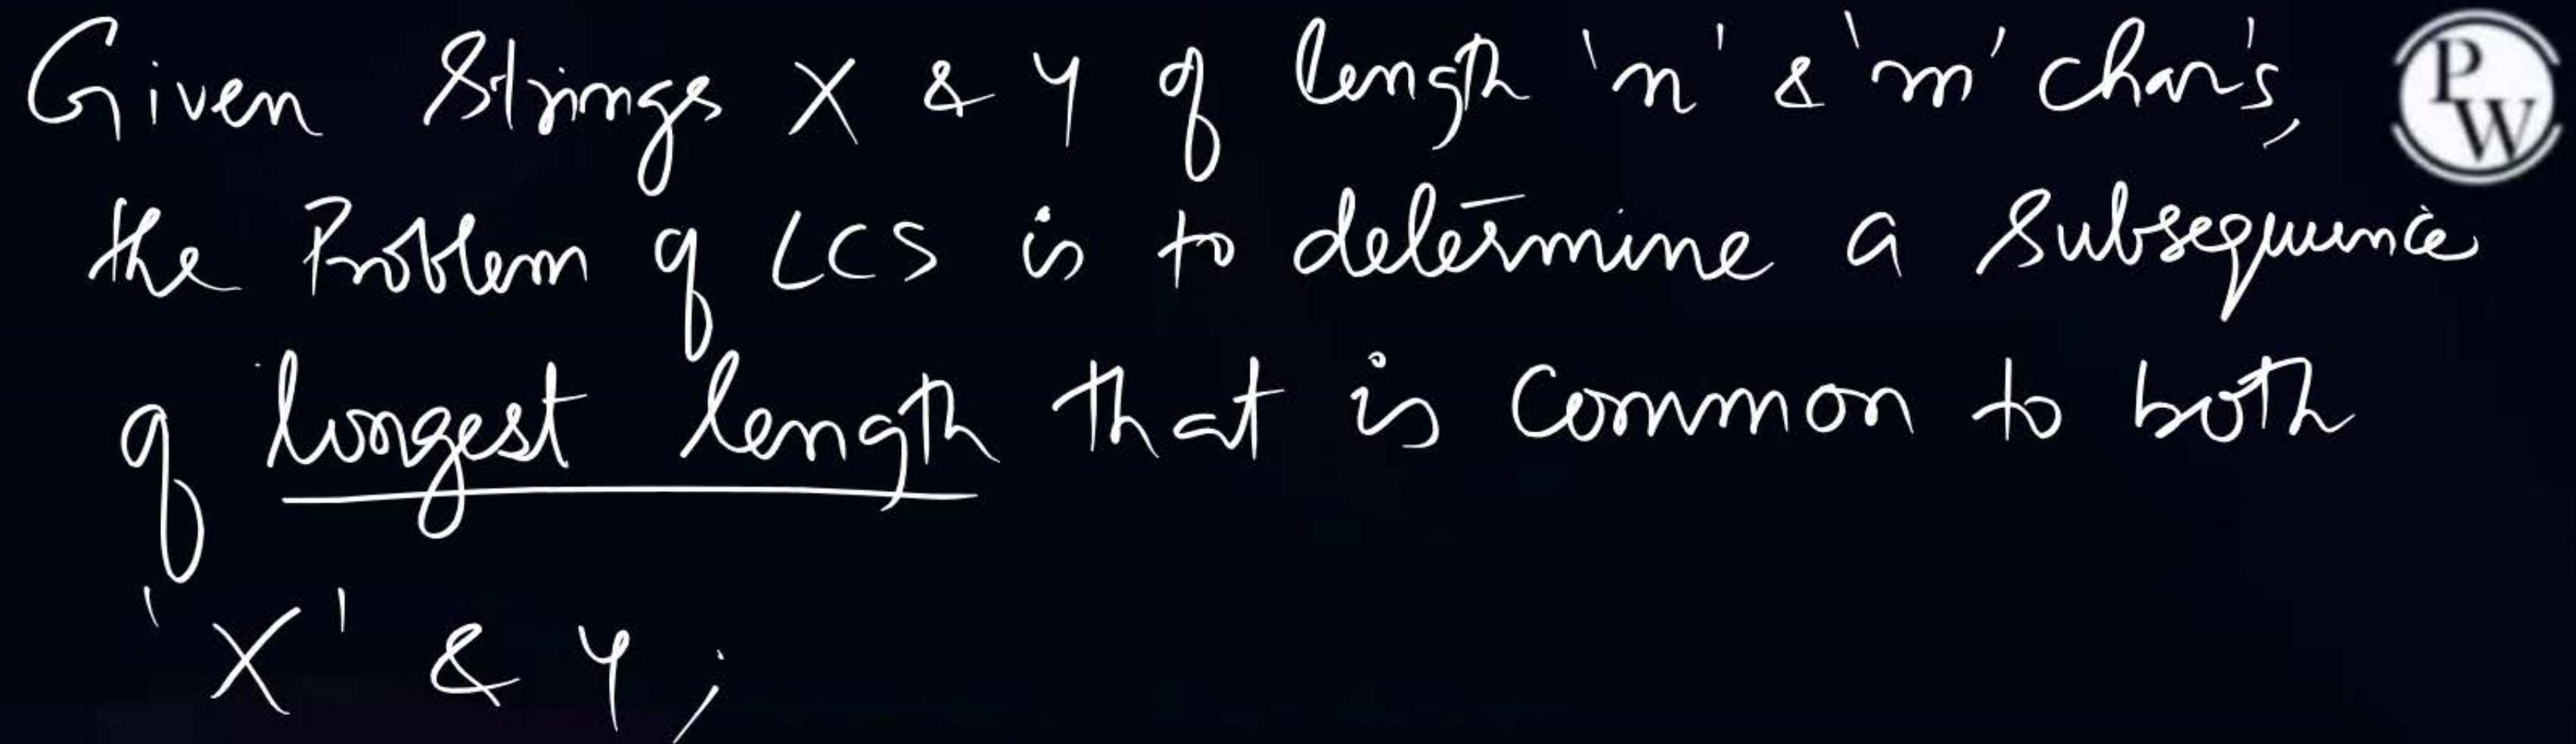 Given Strings X & Y of length 'n' & 'm' char's,
PW
the Problem of LCS is to determine a Subsequence
of longest length that is Common to both
'X' & Y;